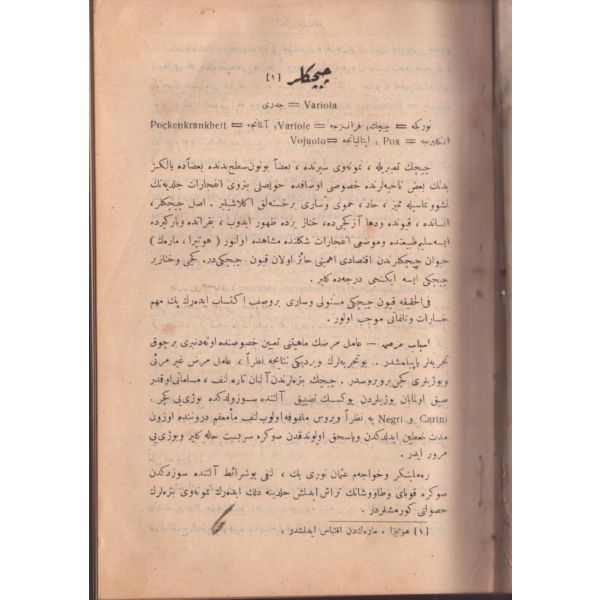 چیچکلر [١]
Variola = جدری
تورکجه = چیچك، فرانسزجه = Variole، آلمانجه = Pockenkrankheit
انکلیزجه = Pox ، ایتالیانجه = Vojuolo
چیچك تعبیریله ، نمونه‌وی سیرنده ، بعضاً بوتون سطح بدنده بعضاده یالکز
بدنك بعض ناحیه‌لرنده خصوصی اوصافده حویصلی بثروی انفجارات جلدیه‌نك
نشوونماسیله ممیز ، حاد ، حموی وساری برخسته‌لق اکلاشیلیر . اصل چیچکلر،
انسانده ، قیونده ودها آز کچی‌ده، خنازیرده ظهور ایدوب ، بقرلرده وبارکیرده
ایسه سلیم طبیعتده وموضعی انفجارات شکلنده مشاهده اولنور ( هوتیرا ، مارەك )
حیوان چیچکلرندن اقتصادی اهمیتی حائز اولان قیون چیچکی‌در. کچی وخنازیر
چیچکی ایسه ایکنجی درجه‌ده کلیر .
فی‌الحقیقه قیون چیچکی مستولی وساری بروصف اکتساب ایده‌رك پك مهم
خسارات وتلفاتی موجب اولور .
اسباب مرضیه — عامل مرضك ماهیتی تعیین خصوصنده اوته‌دنبری برچوق
تجربه‌لر یاپیلمشدر . بوتجربه‌لرك ویردیکی نتایجه نظراً ، عامل مرض غیر مرئی
وبوژیلری کچن بروروسدر . چیچك بثره‌لرندن آلنان تازه لنف ، مساماتی اوقدر
صیق اولمایان بوژیلردن یوکسك تضییق آلتنده سوزولدکده بوژی‌یی کچر .
Carini و Negri یه نظراً ویروس ملفوفه اولوب لنف مأمقطر درونده اوزون
مدت تعطین ایدلدکدن وپاسحق اولوندقدن صوکره سربست حاله کلیر وبوژی‌یی
مرور ایدر .
ره‌ملینکر وخواجه‌م عثمان نوری بك ، لنفی بوشرائط آلتنده سوزدکدن
صوکره قوبای وطاووشانك تراش ایدلمش جلدینه دلك ایده‌رك نمونه‌وی بثره‌لرك
حصولنی کورمشلردر .
[١] هوتیرا ، مارەك‌دن اقتباس ایدلمشدر .